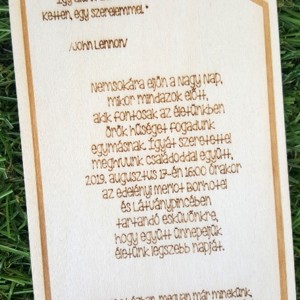 ketten, egy szerelemmel."
/John Lennon/
Nemsokára eljön a Nagy Nap,
mikor mindazok előtt,
akik fontosak az életünkben
örök hűséget fogadunk
egymásnak. Így hát szeretettel
meghívunk családoddal együtt,
2019. augusztus 17-én 16:00 órakor
az edelényi Merlot Borhotel
és Látványpincében
tartandó esküvőnkre,
hogy együtt ünnepeljük
életünk legszebb napját.
megvan már mindenünk,